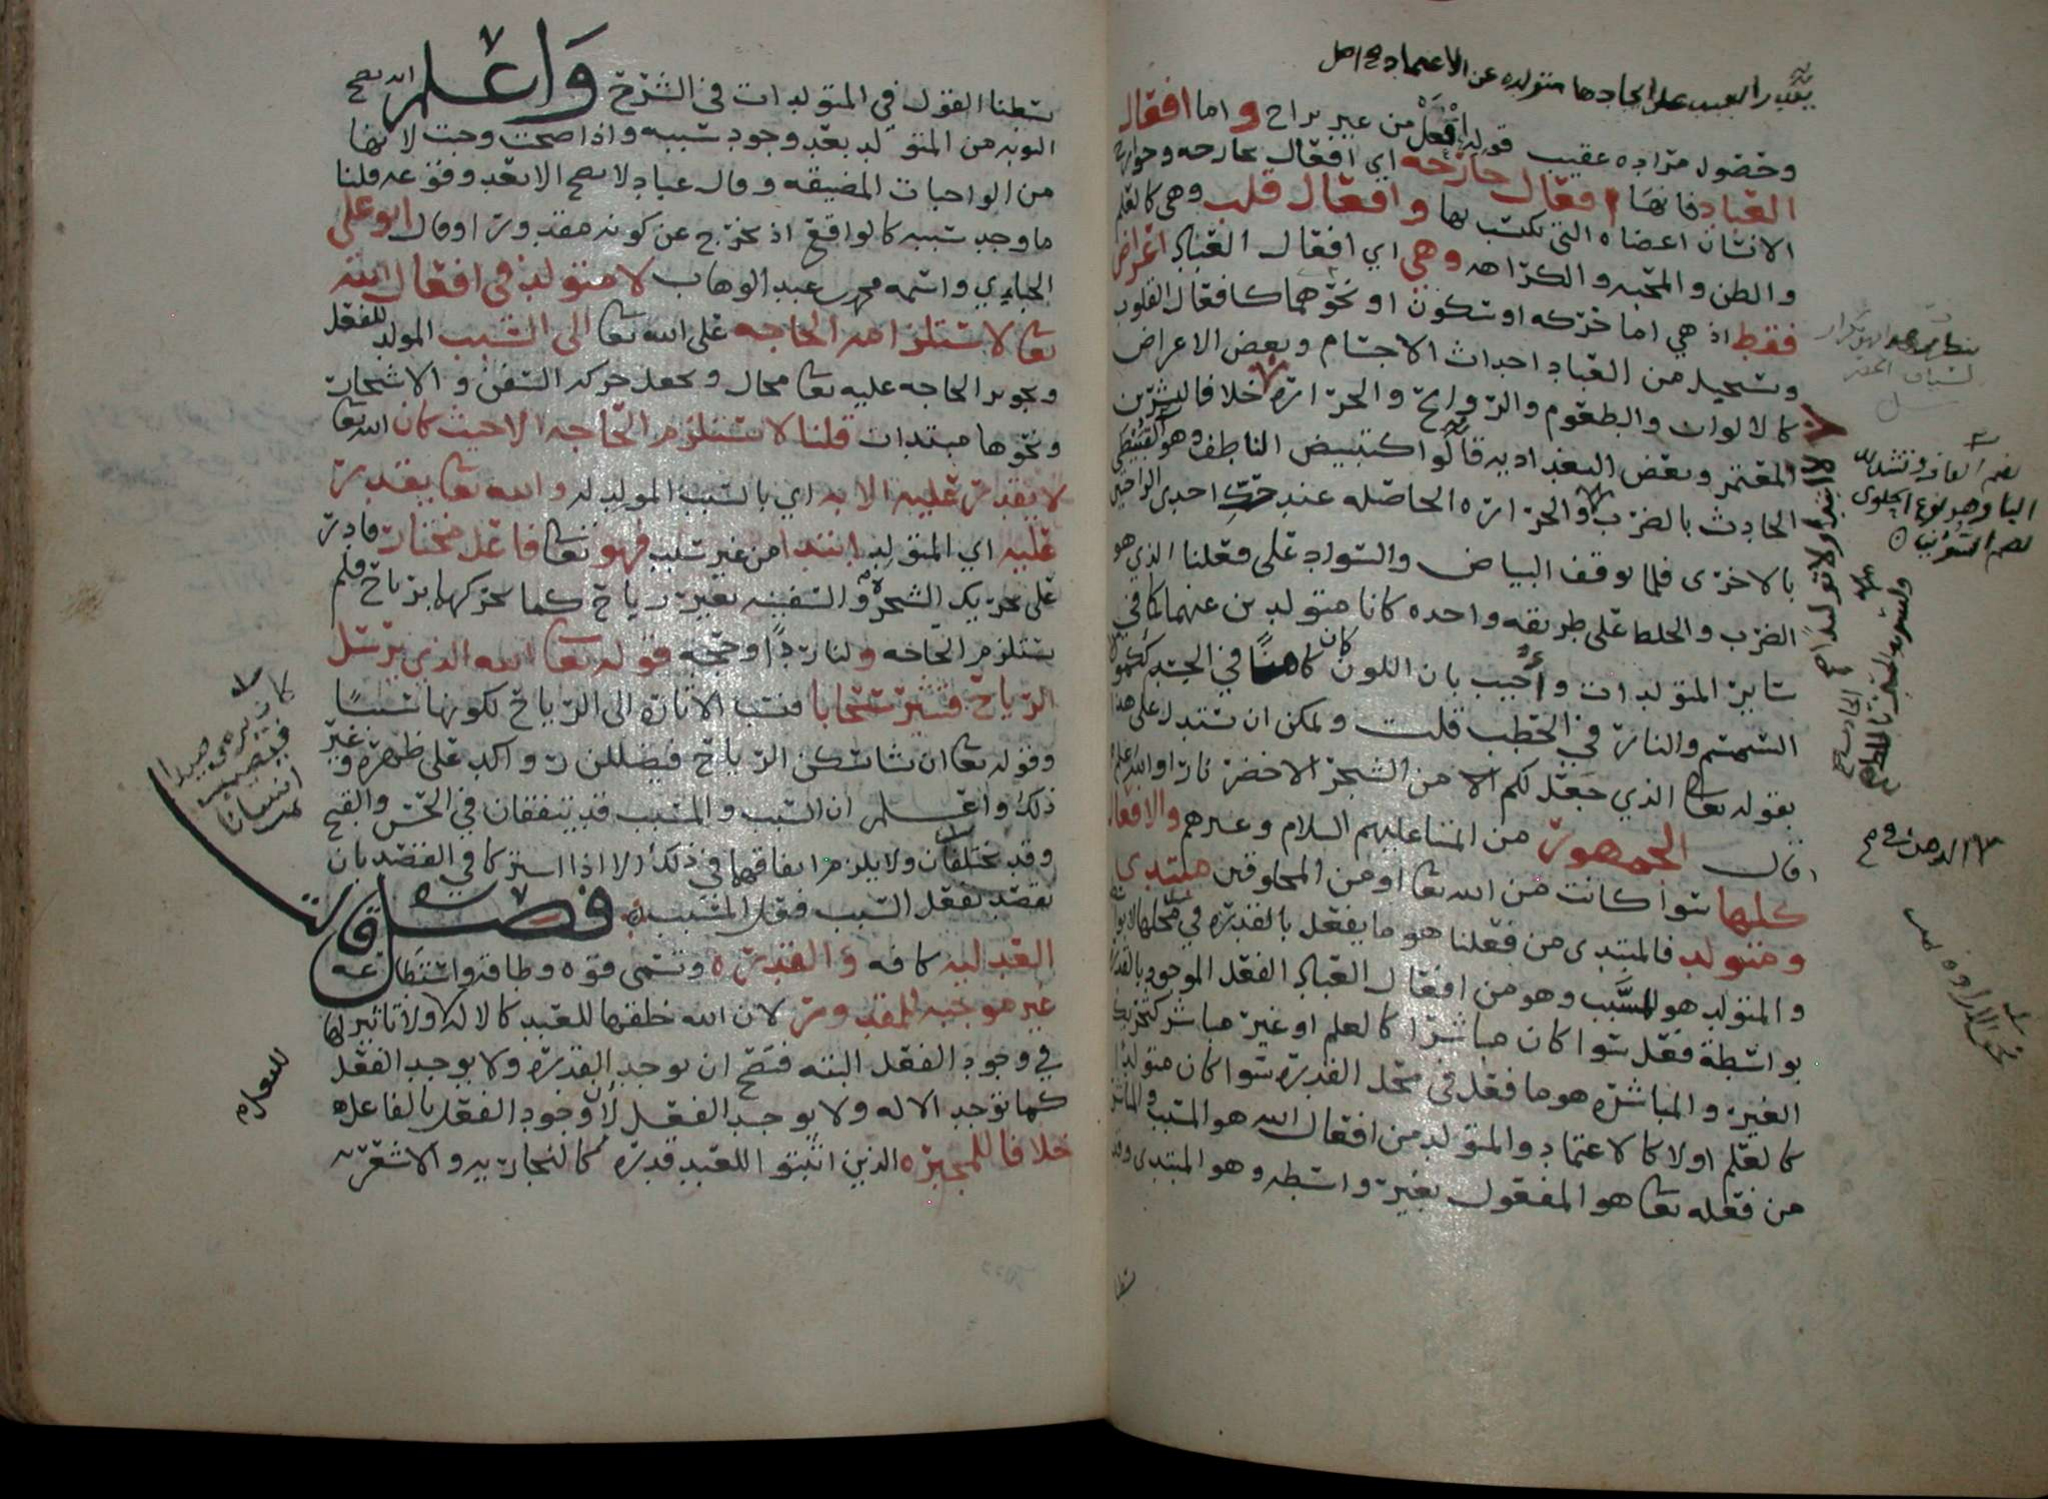 وحصول مراده عقيب قوله افعل من غير براح واما افعال
العباد فانها افعال جارحه اي افعال بجارحه وجوارح
الانسان اعضاه التي يكتسب بها وافعال قلب وهي كالعلم
والظن والمحبه والكراهه وهي اي افعال العباد اعراض
فقط اذ هي اما حركه او سكون او نحوهما كافعال القلوب
ويستحيل من العباد احداث الاجسام وبعض الاعراض
كالالوان والطعوم والروايح والحرارة خلافا لبشر بن
المعتمر وبعض البغداديه قالوا كتبييض الناطف وهو القبيطى
الحادث بالضرب والحراره الحاصله عند حك احدى الراحتين
بالاخرى فلما يوقف البياض والسواد على فعلنا الذي هو
الضرب والخلط على طريقه واحده كانا متولدين عنهما كما في
ساير المتولدات واجيب بان اللون كان كامنا في الجسد ككمون
السمسم والنار في الحطب قلت ويمكن ان يستدل على هذا
بقوله تعالى الذي جعل لكم من الشجر الاخضر نارا والله اعلم
قال الجمهور من ائمتنا عليهم السلام وغيرهم والافعال
كلها سوا كانت من الله تعالى او من المخلوقين مبتدى
ومتولد فالمبتدى من فعلنا هو ما يفعل بالقدرة في محلها لا بواسطة
والمتولد هو المسبَّب وهو من افعال العباد الفعل الموجود بالقدرة
بواسطة فعل سوا كان مباشرا كالعلم او غير مباشر كتحريك
الغير والمباشره هو ما فعل في محل القدرة سوا كان متولدا
كالعلم اولا كالاعتماد والمتولد من افعال الله هو المسبب والمباشر
من فعله تعالى هو المفعول بغير واسطه وهو المبتدى وقد
بسطنا القول في المتولدات في الشرح واعلم انه تصح
التوبه من المتولد بعد وجود سببه واذا صحت وجبت لانها
من الواجبات المضيقه وقال عباد لا تصح الا بعد وقوعه قلنا
ما وجد سببه كالواقع اذ يخرج عن كونه مقدورا وقال ابو علي
الجبايي واسمه محمد بن عبد الوهاب لا متولد في افعال الله
تعالى لاستلزامه الحاجه على الله تعالى الى السبب المولد للفعل
وتجويز الحاجه عليه تعالى محال وجعل حركه السفن والاشجار
ونحوها مبتدات قلنا لا يستلزم الحاجه الا حيث كان الله تعالى
لا يقدر عليه الا به اي بالسبب المولد له والله تعالى يقدر
عليه اي المتولد ابتدا من غير سبب فهو تعالى فاعل مختار قادر
على تحريك الشجرة والسفينه بغير رياح كما يحركها برياح فلم
يستلزم الحاجه ولنا ردا وحجه قوله تعالى الله الذي يرسل
الرياح فتثير سحابا فنسب الاثارة الى الرياح لكونها سببا
وقوله تعالى ان يشا يسكن الرياح فيضللن رواكد على ظهره وغير
ذلك واعلم ان السبب والمسبب قد يتفقان في الحسن والقبح
وقد يختلفان ولا يلزم اتفاقهما في ذلك الا اذا اشتركا في القصد بان
يقصد بفعل السبب فعل المسبب فصل قالت
العدليه كافه والقدره وتسمى قوه وطاقة واستطاعه
غير موجبه للمقدور لان الله خلقها للعبد كالاله ولا تاثير لها
في وجود الفعل البته فيصح ان توجد القدرة ولا يوجد الفعل
كما توجد الاله ولا يوجد الفعل لان وجود الفعل بالفاعل
خلافا للمجبره الذين اثبتوا للعبد قدرة كالنجاريه والاشعريه